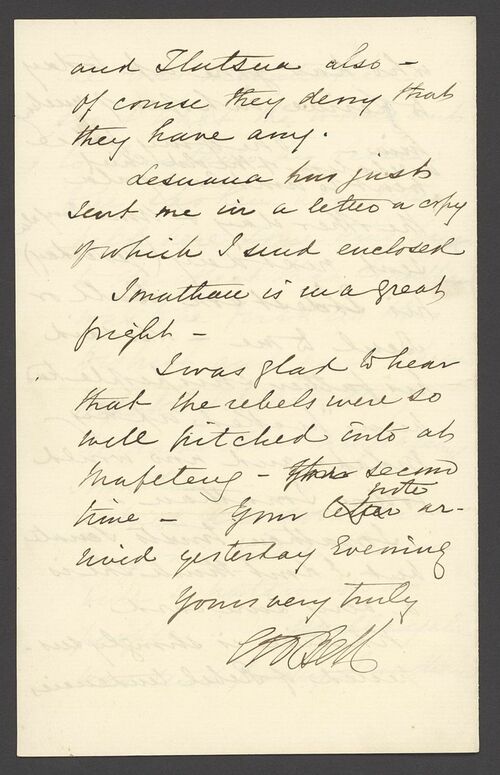 and Tlatsua also -
of course they deny that
they have any.
Lesuana has just
sent me in a letter a copy
of which I send enclosed
Jonathan is in a great
fright -
I was glad to hear
that the rebels were so
well pitched into at
Mafeteng - second
note
time - Your letter ar-
rived yesterday Evening
Yours very truly
Bell